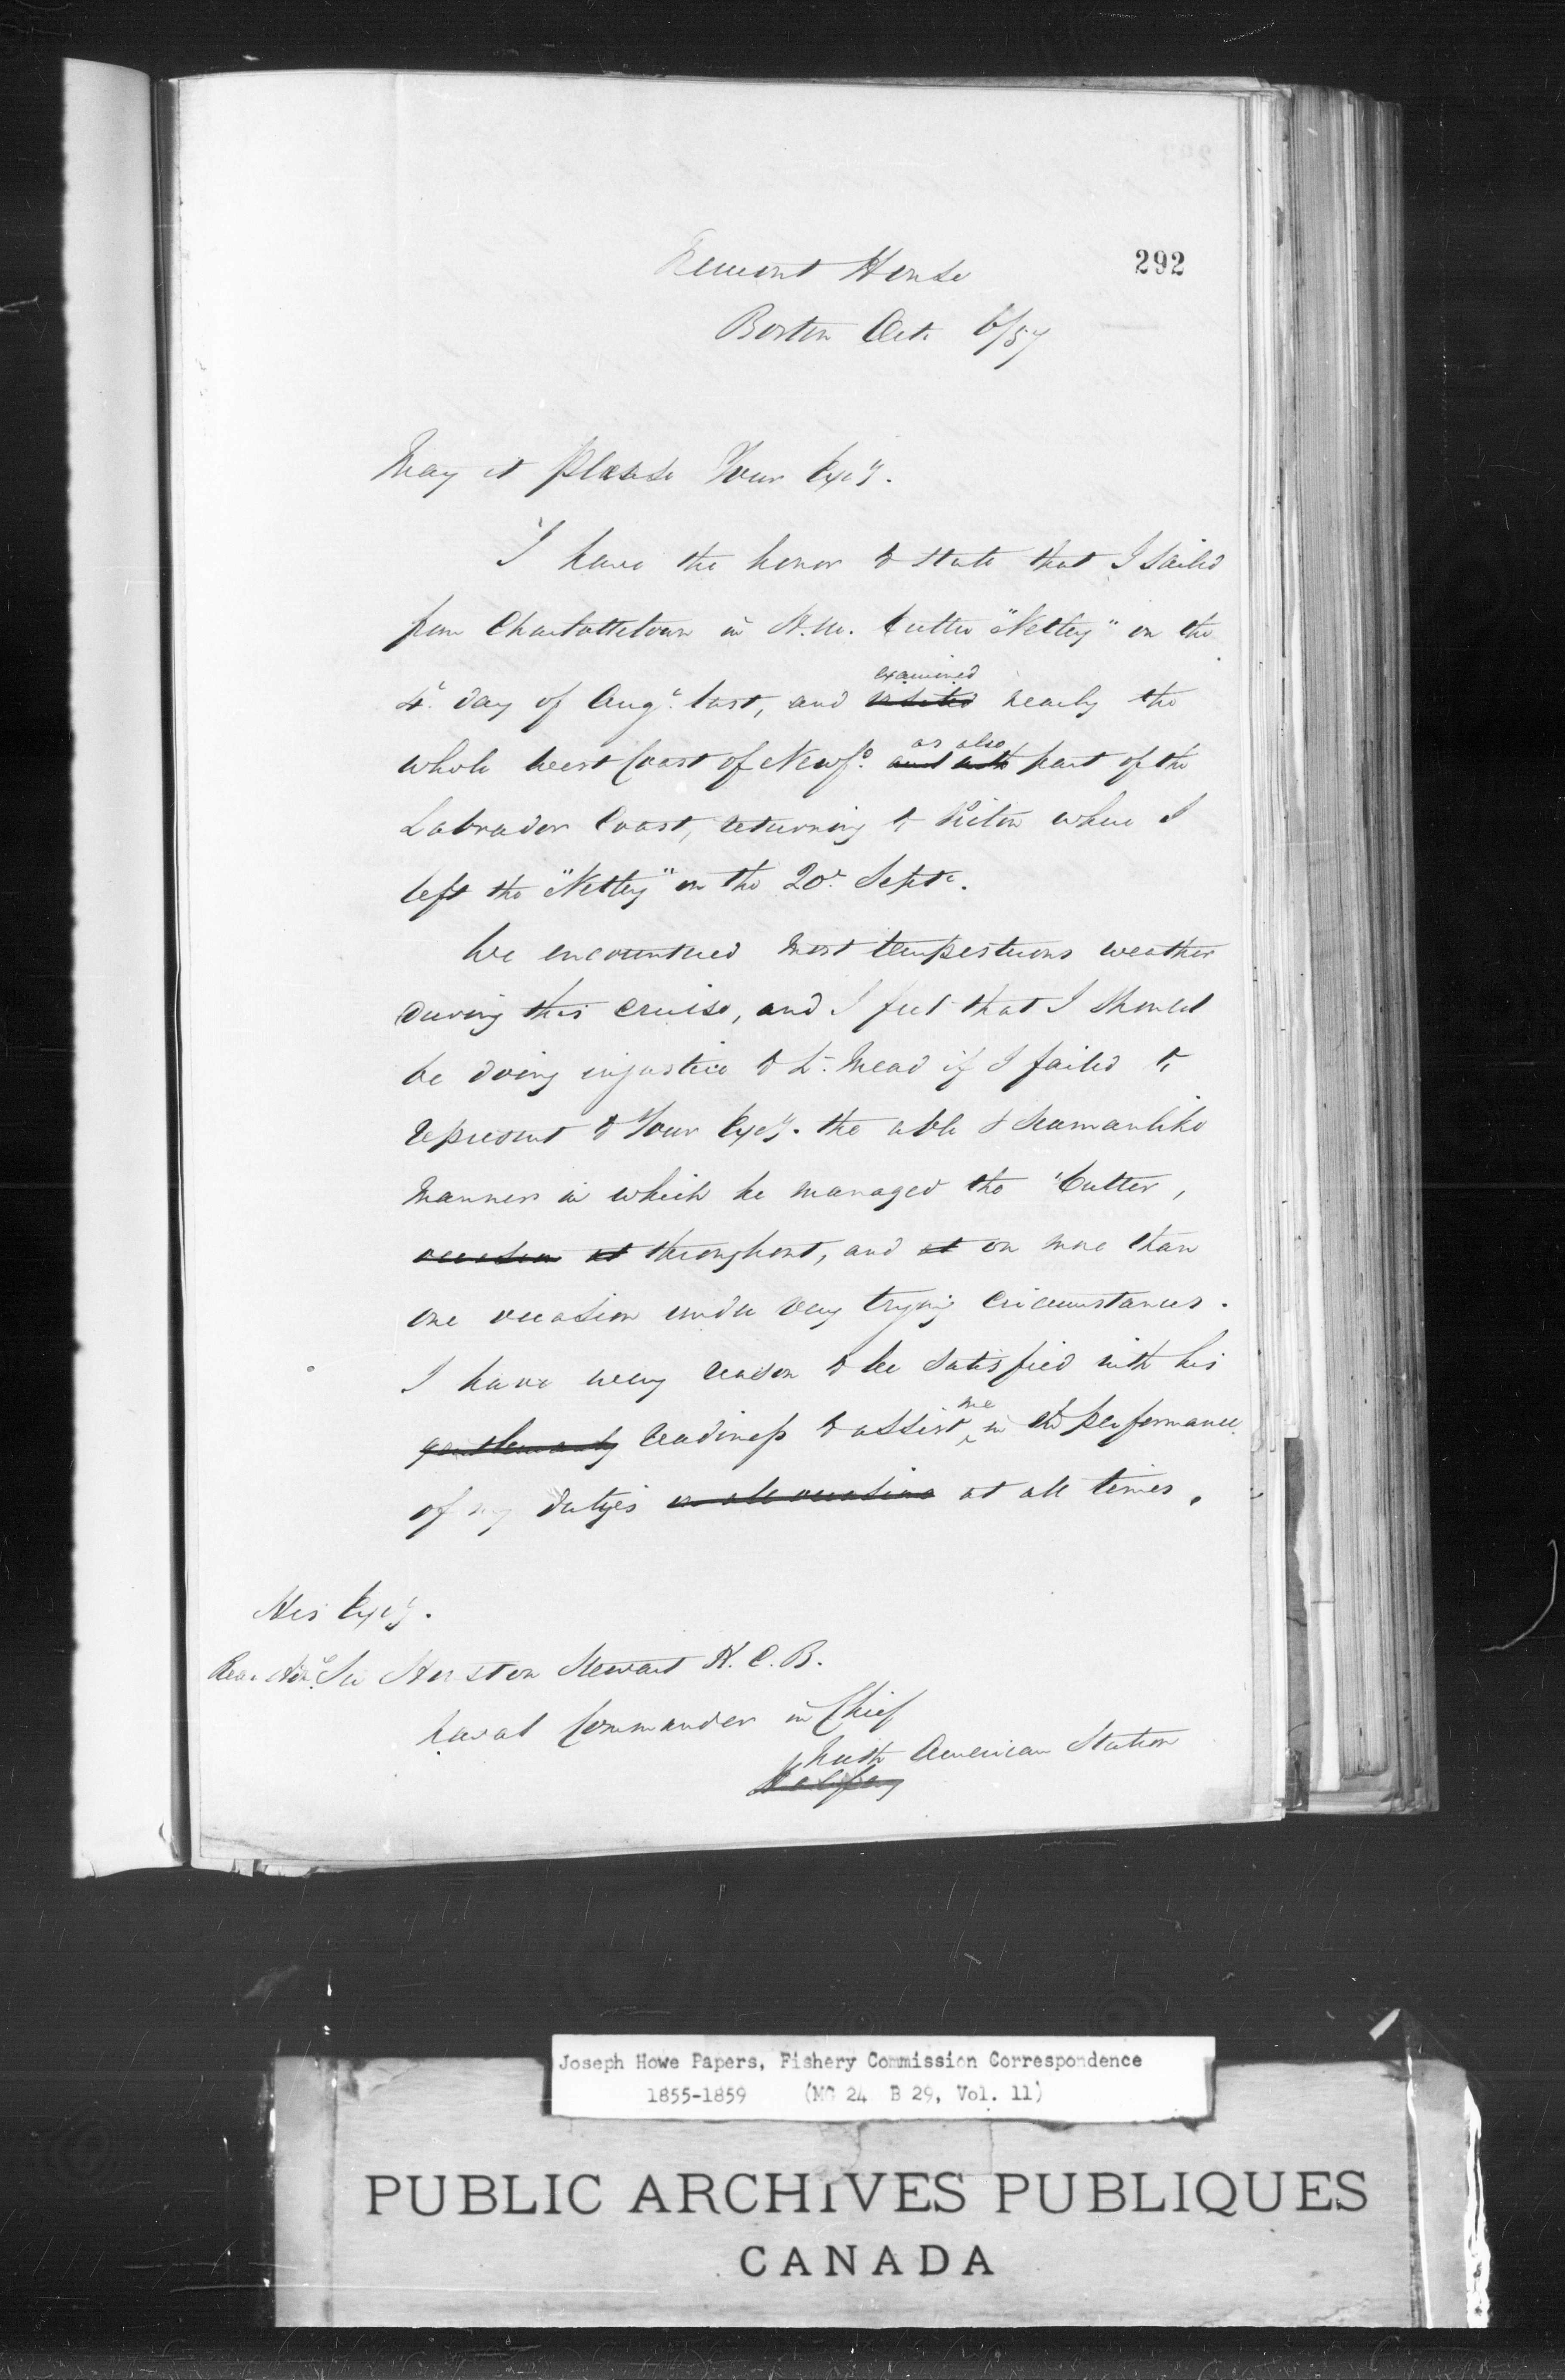 292
Tremont House
Boston Oct. 6/57
May it Please Your Excy.
I have the honor to state that I sailed
from Charlottetown in H.M. Cutter "Netley" on the
examined
4th day of Augt. last, and visited nearly the
as also
whole West Coast of Newfd. and with part of the
Labrador Coast, returning to Pictou where I
left the "Netley" on the 20th Septr.
We encountered most tempestuous weather
during this cruise, and I feel that I should
be doing injustice to Lt. Mead if I failed to
represent to Your Excy. the able & Seamanlike
manner in which he managed the Cutter,
occasion at throughout, and at on more than
one occasion under very trying Circumstances.
I have every reason to be satisfied with his
me
gentlemanly readiness to assist in the performance
of my duties on all occasions at all times.
His Excy.
Rear Adml. Sir Houston Stewart K.C.B.
Naval Commander in Chief
North American Station
Halifax
Joseph Howe Papers, Fishery Commission Correspondence
1855-1859 (MG 24 B 29, Vol. 11)
PUBLIC ARCHIVES PUBLIQUES
CANADA